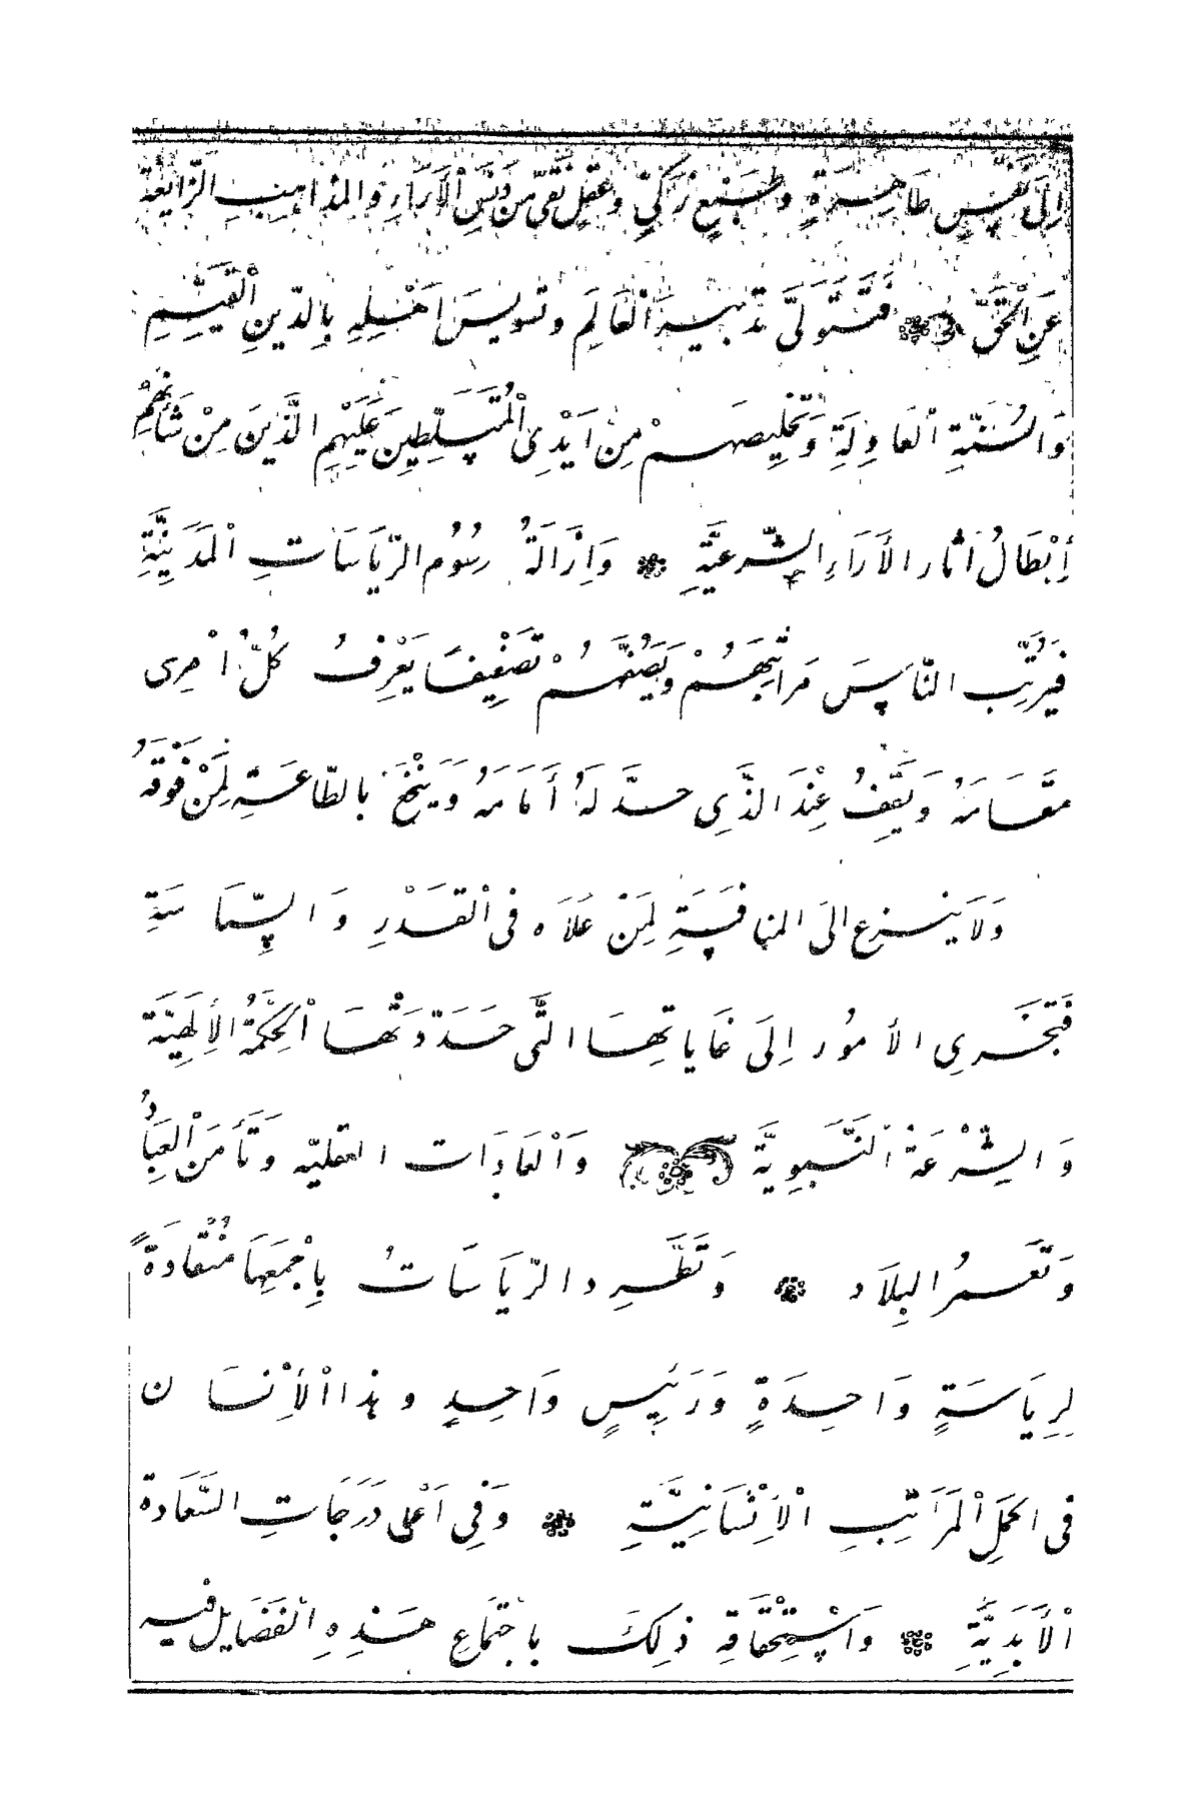 إِلَى نَفْسٍ طَاهِرَةٍ وَطَبْعٍ زَكِيٍّ وَعَقْلٍ نَقِيٍّ مِنْ دَنَسِ الْأَرَاءِ وَالمذَاهِبِ الزَّائِغَةِ
عَنِ الْحَقِّ فَتَتَوَلَّى تَدْبِيرَ الْعَالَمِ وَتَسْوِيسَ أَهْلِهِ بِالدِّينِ الْقَيِّمِ
وَالسُّنَّةِ الْعَادِلَةِ وَتَخْلِيصَهُمْ مِنْ أَيْدِى الْمُتَسَلِّطِينَ عَلَيْهِمِ الَّذِينَ مِنْ شَأْنِهِمْ
إِبْطَالُ أثار الأَرَاءِ الشَّرعيَّةِ وَإِزَالَةُ رسُوُم الرّيَاسَاتِ الْمَدَنِيَّةِ
فَيُرَتِّب النَّاسَ مَراتِبَهُمْ وَيُصَنِّفُهُمْ تَصْنِيفًا يَعْرِفُ كُلُّ امْرِى
مقَامَهُ وَيَقِفُ عِنْدَ الذَّى حدَّ لَهُ أَمَامَهُ وَيَنْخَعَ بالطّاعَةِ لِمَنْ فَوْقَهُ
وَلَا ينزع الىَ المنافَسَةِ لِمَنْ عَلَاه فى الْقَدْرِ وَالسِّيَاسَةِ
فَتَجْرِى الأمُور إِلَى غَاياتِهَا التَّى حَدَّدَتْهَا الْحِكْمَةُ الإِلَهِيَّة
وَالشِّرْعَةُ النَّبَوِيَّة وَالْعَادَات العقليّه وَتَأمَن الْعِبَادُ
وَتَعمرُ البِلَاد وَتَطَّرِد الرّيَاسَاتُ بِأَجْمَعِهَا مُنْقادَةً
لِرِيَاسَةٍ وَاحِدَةٍ وَرَئِيسٍ وَاحِدٍ وهذا الْأِنْسَان
فى اكمَلِ الْمَرَاتِبِ الْأِنْسَانِيَّةِ وَفِى أَعْلى دَرَجَاتِ السَّعَادة
الْأَبَدِيَّةِ وَاسْتِحْقَاقِهِ ذلِكَ باجتمَاعِ هَذِهِ الْفَضَايل فيه